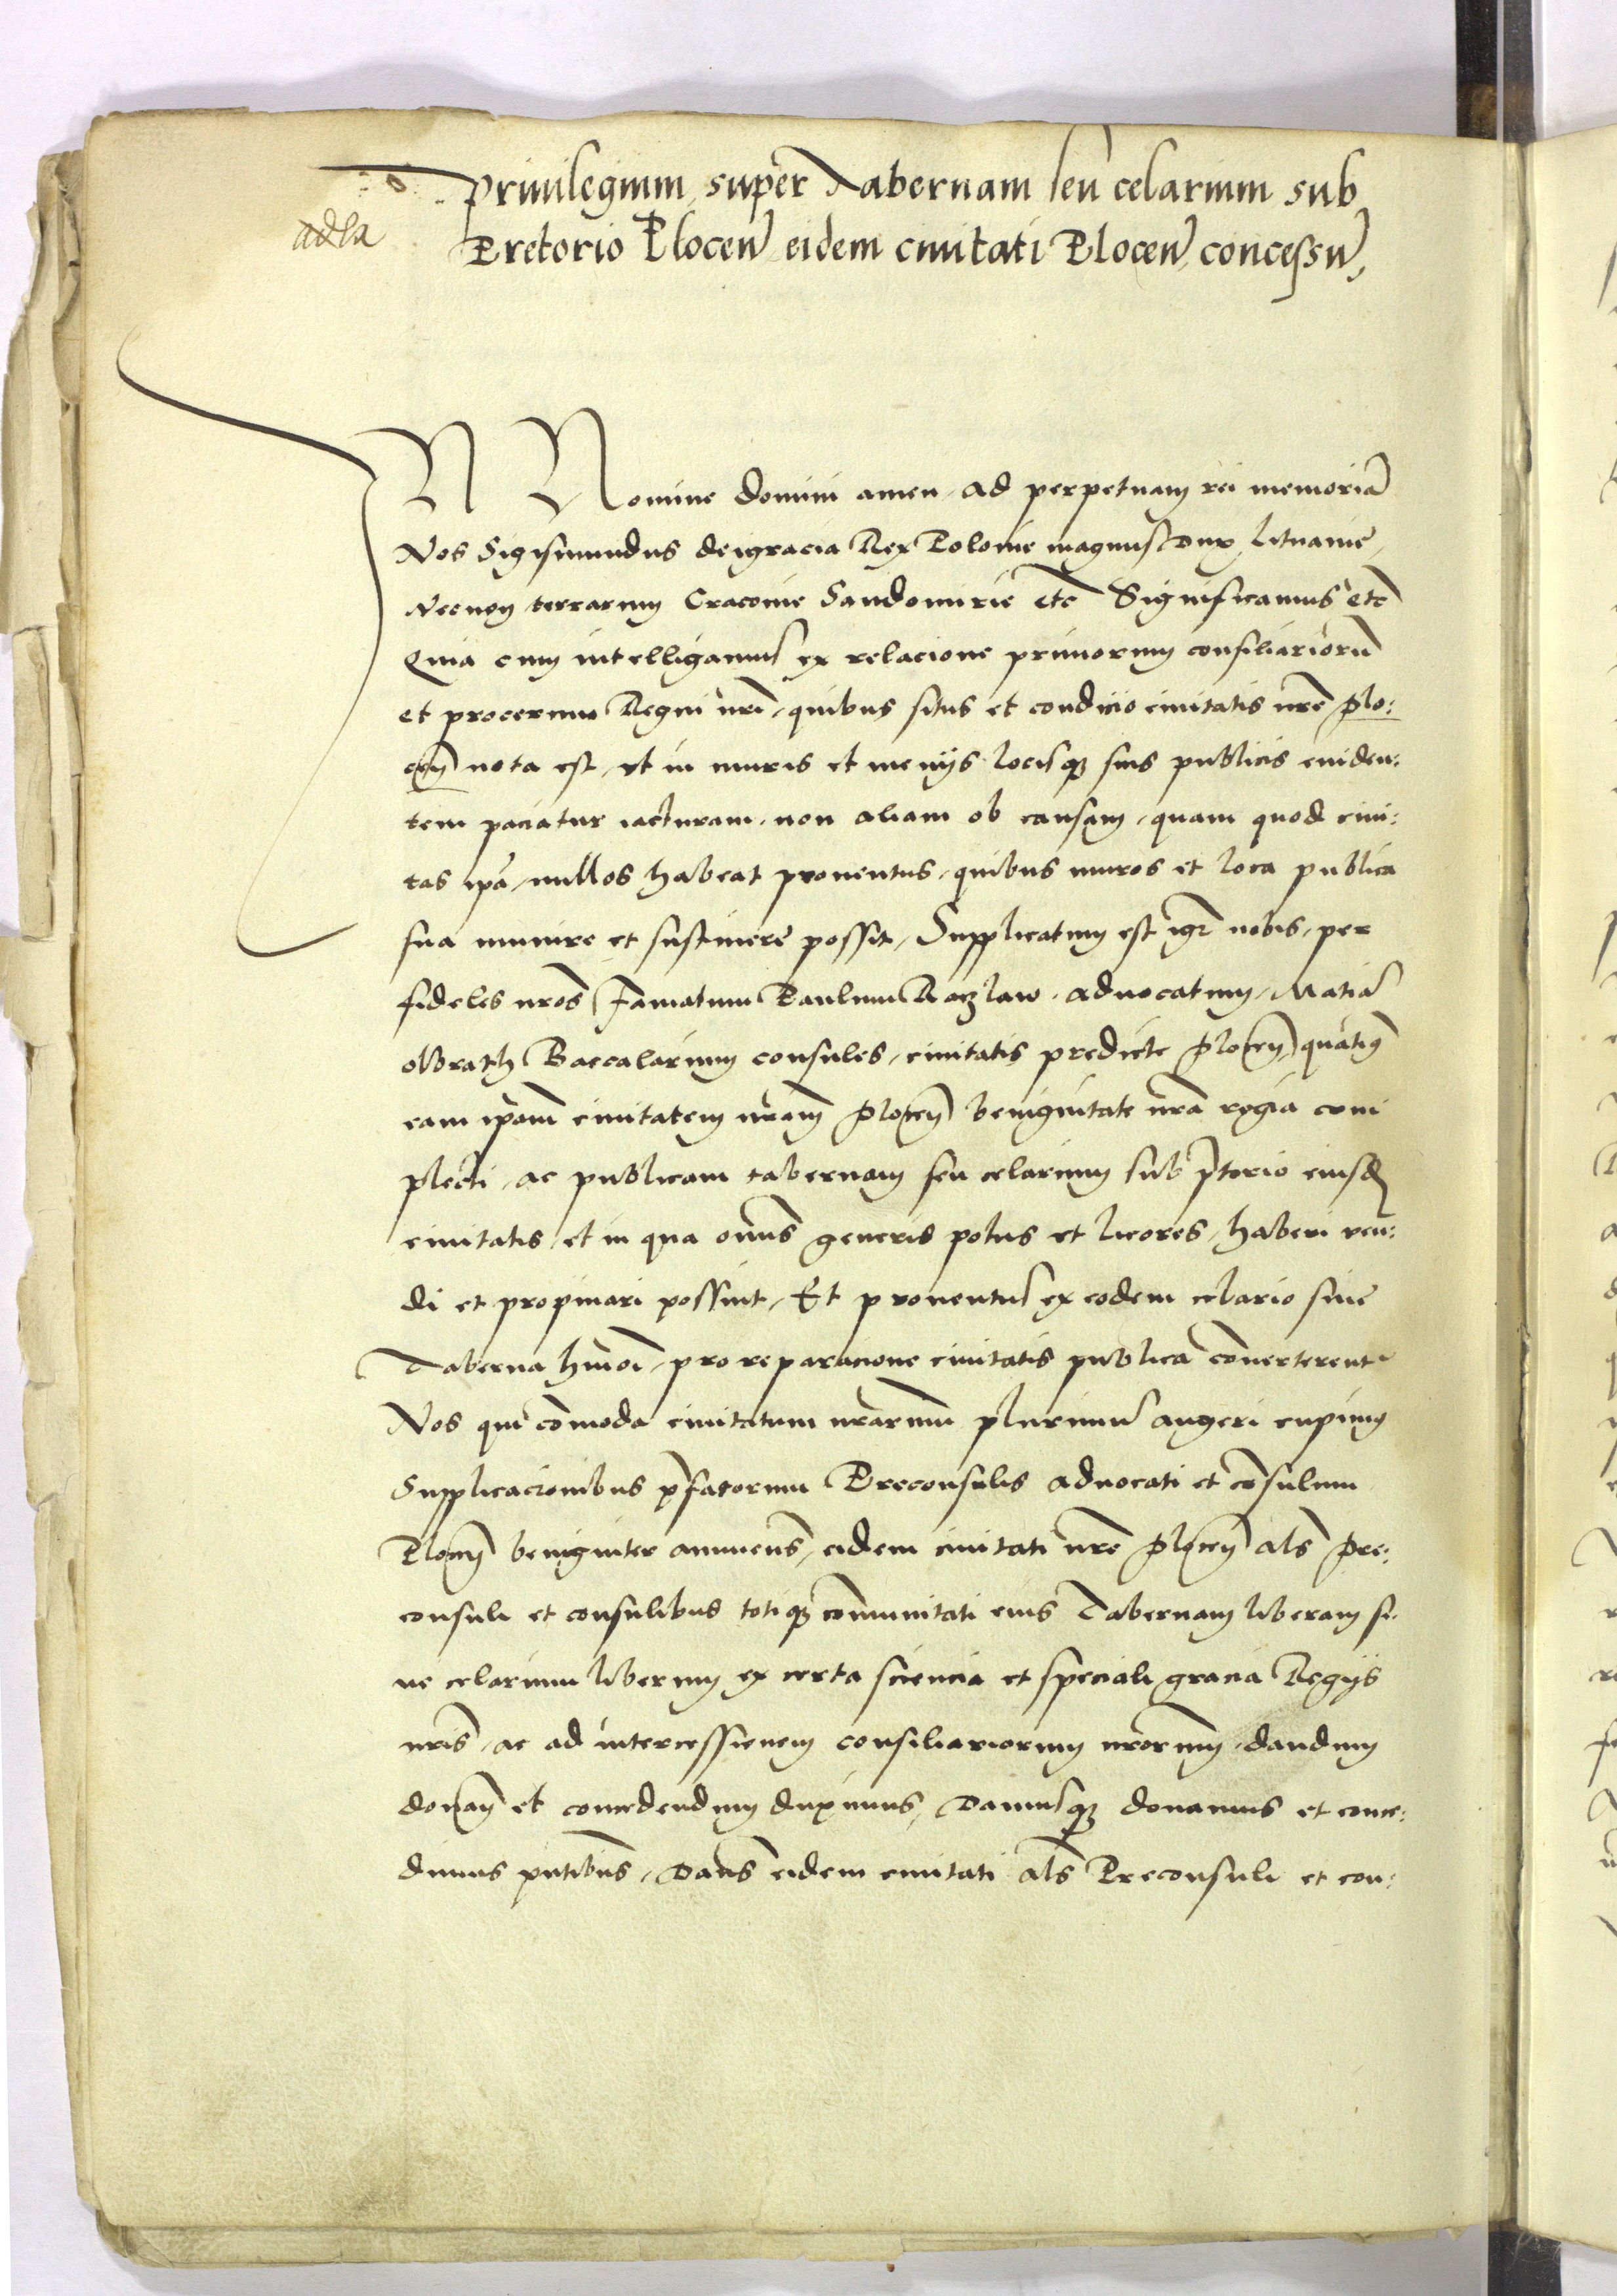 Priuilegium super Tabernam seu celarium sub
adla
Pretorio Plocen̄ eidem ciuitati Plocen̄ concessū
IN Nomine domini amen ad perpetuam rei memoriā
Nos Sigismundus dei gracia Rex Polonie magnus dux Lituanie
Necnon terrarum Cracouie Sandomirie etc̄ Significamus etc̄
Quia cum intelligamus ex relacione primorum consiliariorū
et procerum Regni nrī quibus situs et condicio ciuitatis nrē Plo:
cen̄ nota est, vt in muris et menijs locisq₃ suis publicis euiden:
tem paciatur iacturam non aliam ob causam quam quod ciui:
tas ipā nullos habeat prouentus quibus muros et loca publica
sua munire et sustinere possit, Supplicatum est igr̄ nobis per
fideles nrōs Famatum Paulum Raczlaw aduocatum, Matiā
olbrath Baccalarium consules, ciuitatis predicte Plocen̄ quatīg
eam ipām ciuitatem nrām Plocen̄ benignitate nrā regia com
plecti ac publicam tabernam seu celarium sub p̄torio eiusd̄
ciuitatis et in qua omīs generis potus et licores, haberi ven:
di et propinari possint, Et prouentus ex eodem celario siue
Taberna hmōi pro reparacione ciuitatis publica cōuerterentr
Nos qui cōmoda ciuitatum nrārum plurimū augeri cupimg
Supplicacionibus p̄fatorum Preconsulis aduocati et cōsulum
Plocen̄ benigniter annuens̄, eidem ciuitati nrē Plocen̄ als̄ Pre:
consuli et consulibus totiq₃ cōmunitati eius Tabernam liberam si:
ue celarium liberum ex certa sciencia et speciali gracia Regijs
nrīs ac ad intercessionem consiliariorum nrōrum dandum
donan̄ et concedendum duximus, Damusq₃ donamus et conce:
dimus pn̄tibus̄, Dan̄s eidem ciuitati als̄ Preconsuli et con: